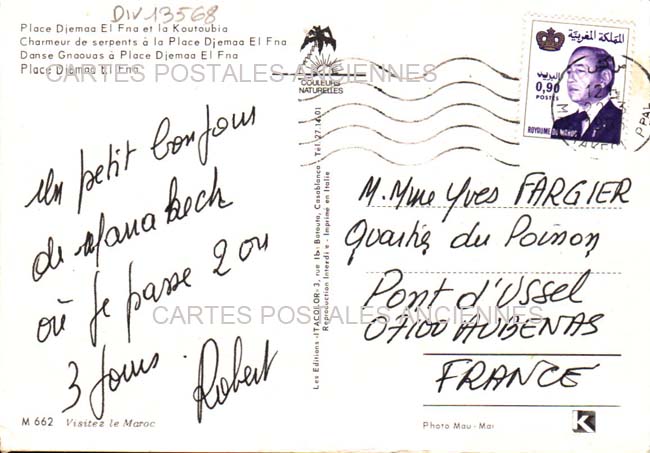 DIV13568
Place Djemaa El Fna et la Koutoubia
Charmeur de serpents à la Place Djemaa El Fna
Danse Gnaouas à Place Djemaa El Fna
Place Djemaa El Fna
CARTES POSTALES ANCIENNES
COULEURS
NATURELLES
المملكة المغربية
البريد
0,90
POSTES
ROYAUME DU MAROC
Un petit bonjour
de Marrakech
où je passe 2 ou
3 jours
Robert
Les Editions «ITACOLOR» 3, rue Ib. Batouta, Casablanca - Tél. 27.14.01
Reproduction Interdite - Imprimé en Italie
M. Mme Yves FARGIER
Quartier du Poisson
Pont d'Ussel
07100 AUBENAS
FRANCE
CARTES POSTALES ANCIENNES
M 662 Visitez le Maroc
Photo Mau - Mai
K